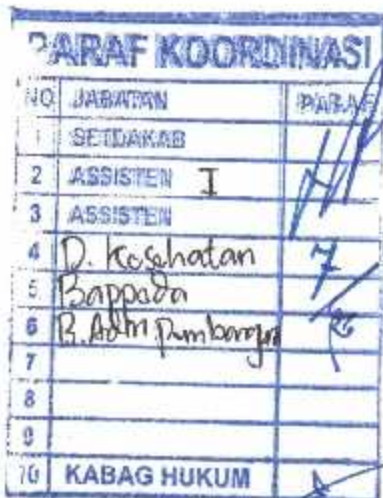 PARAF KOORDINASI
NO JABATAN PARAF
1 SETDAKAB
2 ASSISTEN I
3 ASSISTEN
4 D. Kesehatan
5 Bappeda
6 B. Adm Pembangun
7
8
9
10 KABAG HUKUM